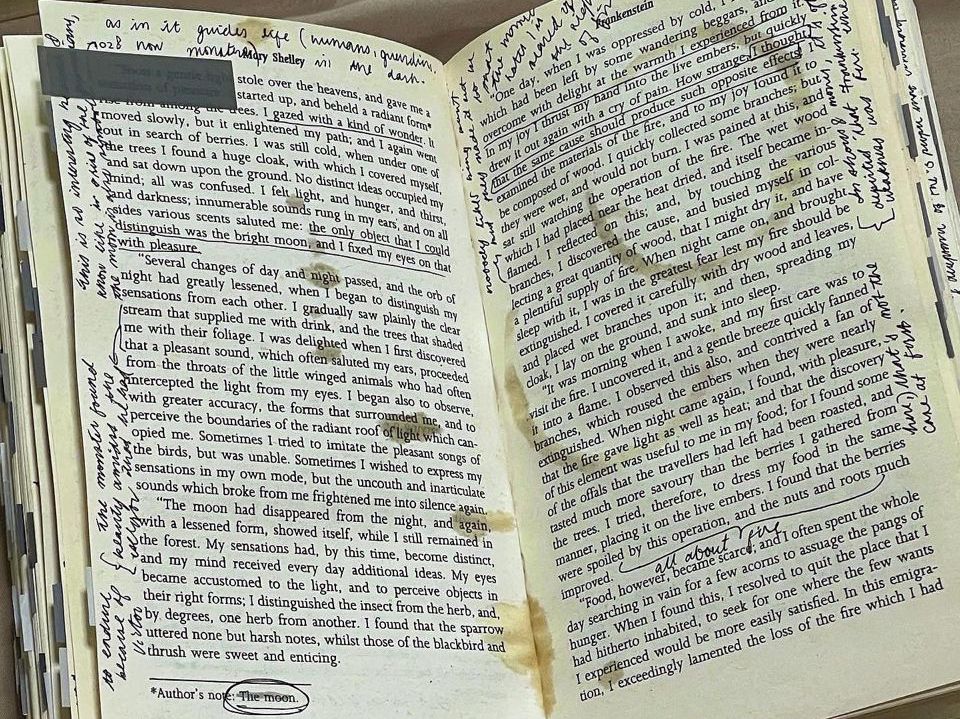 as in it guides life (humans,
now
Mary Shelley
in the dark.
stole over the heavens, and gave me a
started up, and beheld a radiant form*
rise from among the trees. I gazed with a kind of wonder. It
moved slowly, but it enlightened my path; and I again went
out in search of berries. I was still cold, when under one of
the trees I found a huge cloak, with which I covered myself,
and sat down upon the ground. No distinct ideas occupied my
mind; all was confused. I felt light, and hunger, and thirst,
and darkness; innumerable sounds rung in my ears, and on all
sides various scents saluted me: the only object that I could
distinguish was the bright moon, and I fixed my eyes on that
with pleasure.
"Several changes of day and night passed, and the orb of
night had greatly lessened, when I began to distinguish my
sensations from each other. I gradually saw plainly the clear
stream that supplied me with drink, and the trees that shaded
me with their foliage. I was delighted when I first discovered
that a pleasant sound, which often saluted my ears, proceeded
from the throats of the little winged animals who had often
intercepted the light from my eyes. I began also to observe,
with greater accuracy, the forms that surrounded me, and to
perceive the boundaries of the radiant roof of light which can-
opied me. Sometimes I tried to imitate the pleasant songs of
the birds, but was unable. Sometimes I wished to express my
sensations in my own mode, but the uncouth and inarticulate
sounds which broke from me frightened me into silence again.
"The moon had disappeared from the night, and again,
with a lessened form, showed itself, while I still remained in
the forest. My sensations had, by this time, become distinct,
and my mind received every day additional ideas. My eyes
became accustomed to the light, and to perceive objects in
their right forms; I distinguished the insect from the herb, and,
by degrees, one herb from another. I found that the sparrow
uttered none but harsh notes, whilst those of the blackbird and
thrush were sweet and enticing.
*Author's note: The moon.
the monster found
beauty amidst the
to endure
because of
Victor
Frankenstein
"One day, when I was oppressed by cold, I
which had been left by some wandering beggars, and
overcome with delight at the warmth I experienced from it.
in my joy I thrust my hand into the live embers, but quickly
drew it out again with a cry of pain. How strange, I thought,
that the same cause should produce such opposite effects! I
examined the materials of the fire, and to my joy found it to
be composed of wood. I quickly collected some branches; but
they were wet, and would not burn. I was pained at this, and
sat still watching the operation of the fire. The wet wood
which I had placed near the heat dried, and itself became in-
flamed. I reflected on this; and, by touching the various
branches, I discovered the cause, and busied myself in col-
lecting a great quantity of wood, that I might dry it, and have
a plentiful supply of fire. When night came on, and brought
sleep with it, I was in the greatest fear lest my fire should be
extinguished. I covered it carefully with dry wood and leaves,
and placed wet branches upon it; and then, spreading my
cloak, I lay on the ground, and sunk into sleep.
"It was morning when I awoke, and my first care was to
visit the fire. I uncovered it, and a gentle breeze quickly fanned
it into a flame. I observed this also, and contrived a fan of
branches, which roused the embers when they were nearly
extinguished. When night came again, I found, with pleasure,
that the fire gave light as well as heat; and that the discovery
of this element was useful to me in my food; for I found some
of the offals that the travellers had left had been roasted, and
tasted much more savoury than the berries I gathered from
the trees. I tried, therefore, to dress my food in the same
manner, placing it on the live embers. I found that the berries
were spoiled by this operation, and the nuts and roots much
improved.
all about fire
"Food, however, became scarce; and I often spent the whole
day searching in vain for a few acorns to assuage the pangs of
hunger. When I found this, I resolved to quit the place that I
had hitherto inhabited, to seek for one where the few wants
I experienced would be more easily satisfied. In this emigra-
tion, I exceedingly lamented the loss of the fire which I had
that's not the
case at first.